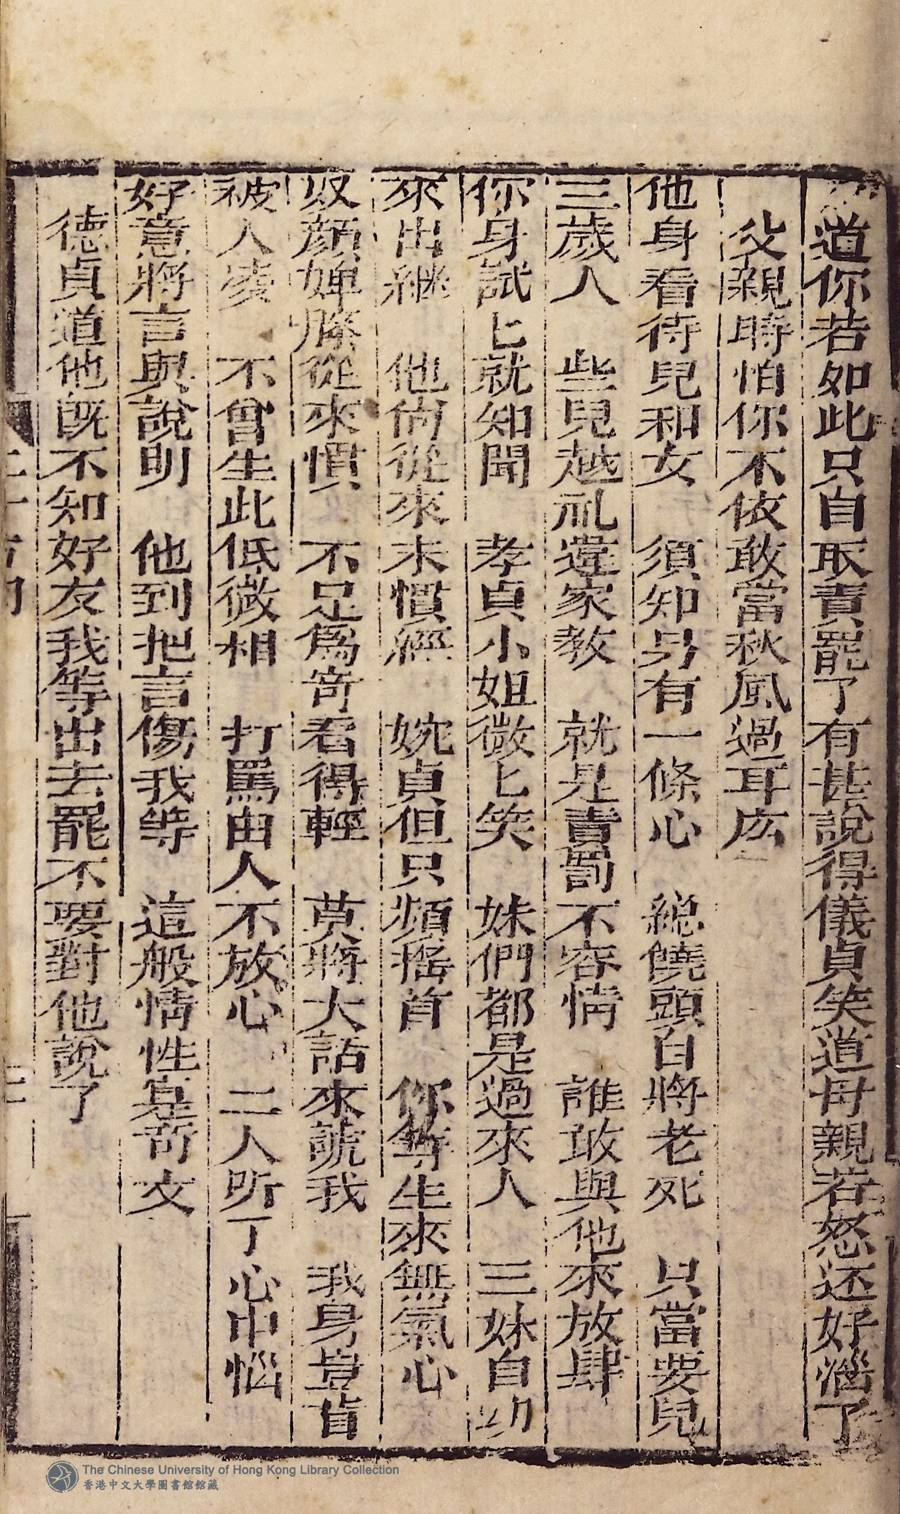 道你若如此只自取責罷了有甚說得儀貞笑道母親若怒还好滛了
父親時怕你不依敢當秋風過耳広
他身看待兒和女　須知另有一條心　縂饒頭白將老死　只當要兒
三歲人　些兒越礼違家教　就是責罰不容情　誰敢與他來放肆
你身試匕就知聞　孝貞小姐微匕笑　妹們都是過來人　三妹自幼
來出継　他倘從來未慣經　婉貞但只頻揺首　你等生來無氣心
奴顏婢膝從來慣　不足為竒看得輕　莫將大話來諕我　我身豈肯
被人凌　不曾生此低微相　打罵由人不放心　二人听了心中惱
好意將言與說明　他到把言傷我等　這般情性寔竒文
德貞道他旣不知好友我等出去罷不要對他說了
The Chinese University of Hong Kong Library Collection
香港中文大學圖書館館藏